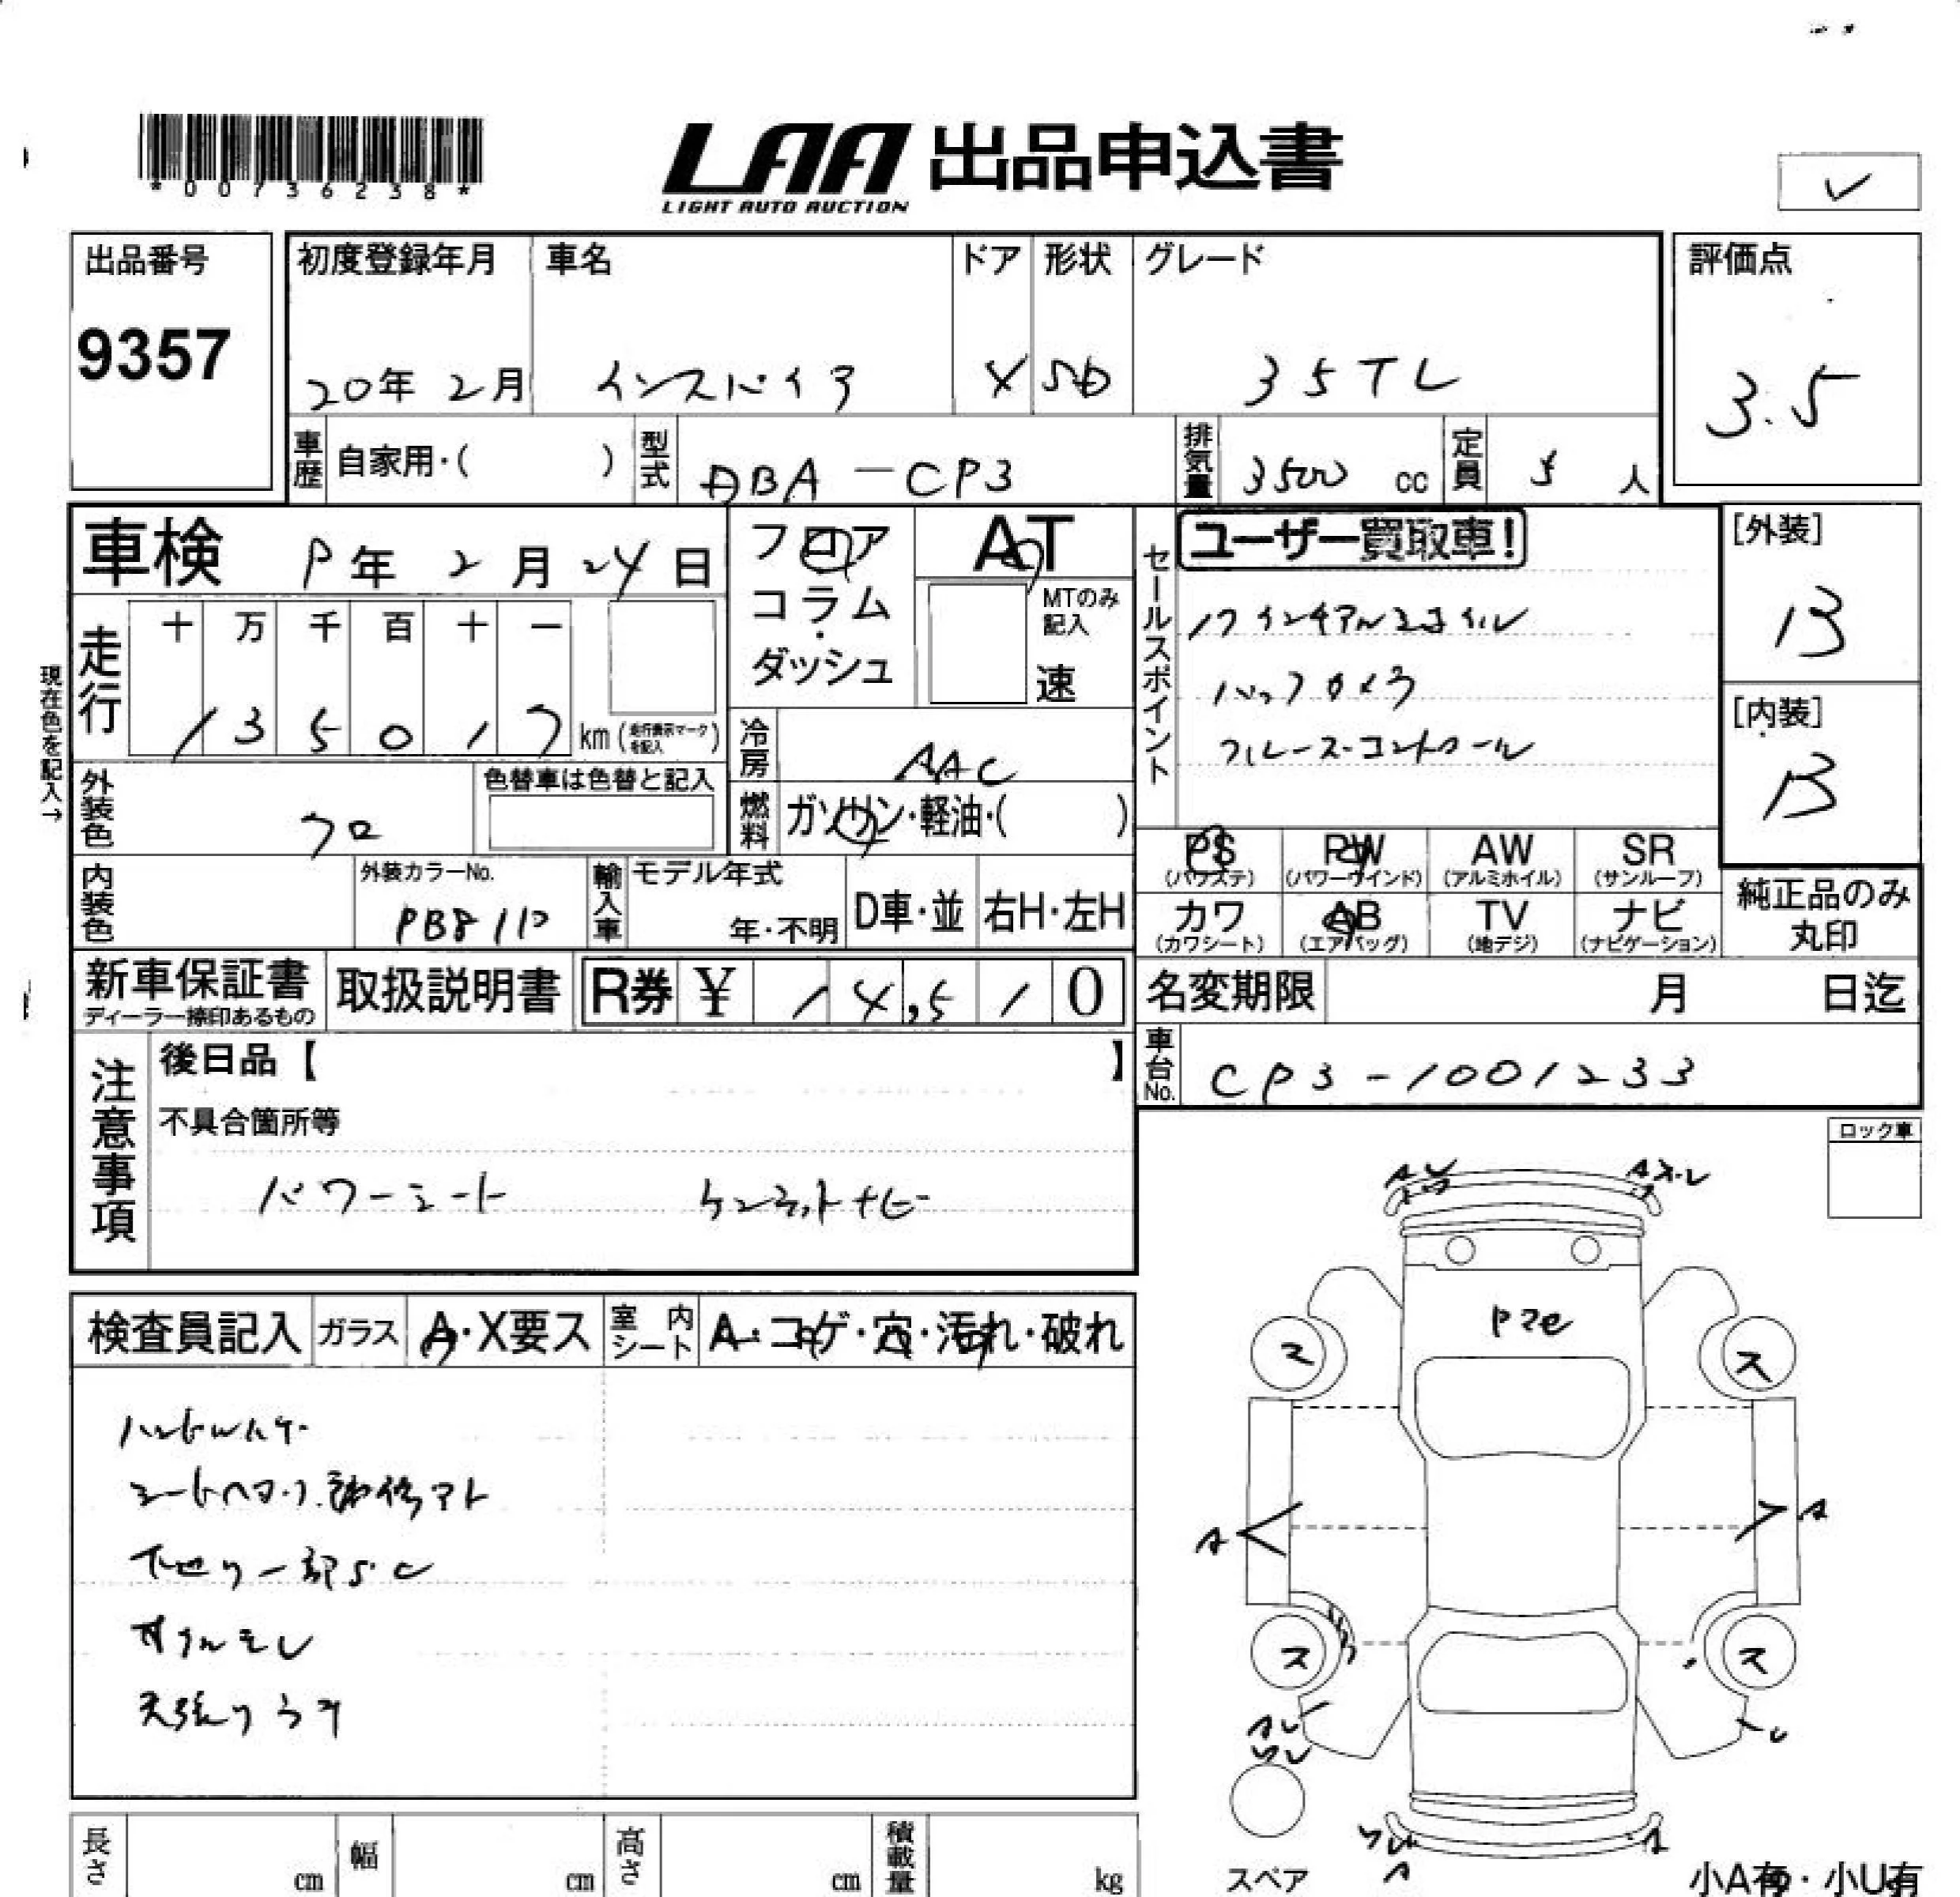 *00736238*
LAA 出品申込書
LIGHT AUTO AUCTION
出品番号
9357
初度登録年月 車名 ドア 形状 グレード
20年 2月 インスパイア 4 SD 35TL
評価点
3.5
車歴 自家用・( ) 型式 DBA-CP3 排気量 3500 cc 定員 5 人
車検 年 2月 24日
フロア コラム・ダッシュ
AT
MTのみ記入 速
セールスポイント
ユーザー買取車!
インチアルミホイル
バックカメラ
クルーズ・コントロール
[外装]
B
[内装]
B
現在色を記入→
走行 十 万 千 百 十 一
1 3 5 0 1 7 km (走行表示マークを記入)
冷房 AAC
燃料 ガソリン・軽油・( )
外装色 クロ 色替車は色替と記入
内装色 外装カラーNo.
輸入車 モデル年式 年・不明 D車・並 右H・左H
PS (パワステ) PW (パワーウインド) AW (アルミホイル) SR (サンルーフ)
カワ (カワシート) AB (エアバッグ) TV (地デジ) ナビ (ナビゲーション)
純正品のみ丸印
新車保証書 ディーラー捺印あるもの 取扱説明書 R券 ¥ 14,510
名変期限 月 日迄
車台No. CP3-1001233
注意事項
後日品【 】
不具合箇所等
パワーシート ケンウットナビ
ロック車
検査員記入 ガラス A・X要ス 室内シート A・コゲ・穴・汚れ・破れ
シートヘタリ. 補修アト
下廻り一部S.C
オイルモレ
天張り
A ス・レ
ス ス
A A
ス ス
A
スペア
小A有・小U有
長さ cm 幅 cm 高さ cm 積載量 kg